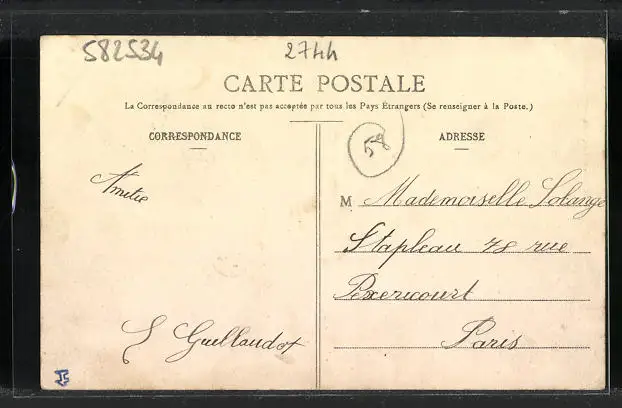 582534
2744
CARTE POSTALE
La Correspondance au recto n'est pas acceptée par tous les Pays Étrangers (Se renseigner à la Poste.)
CORRESPONDANCE
58
ADRESSE
Amitie
M Mademoiselle Solange
Stapleau 78 rue
Pixericourt
Paris
S Guillaudot